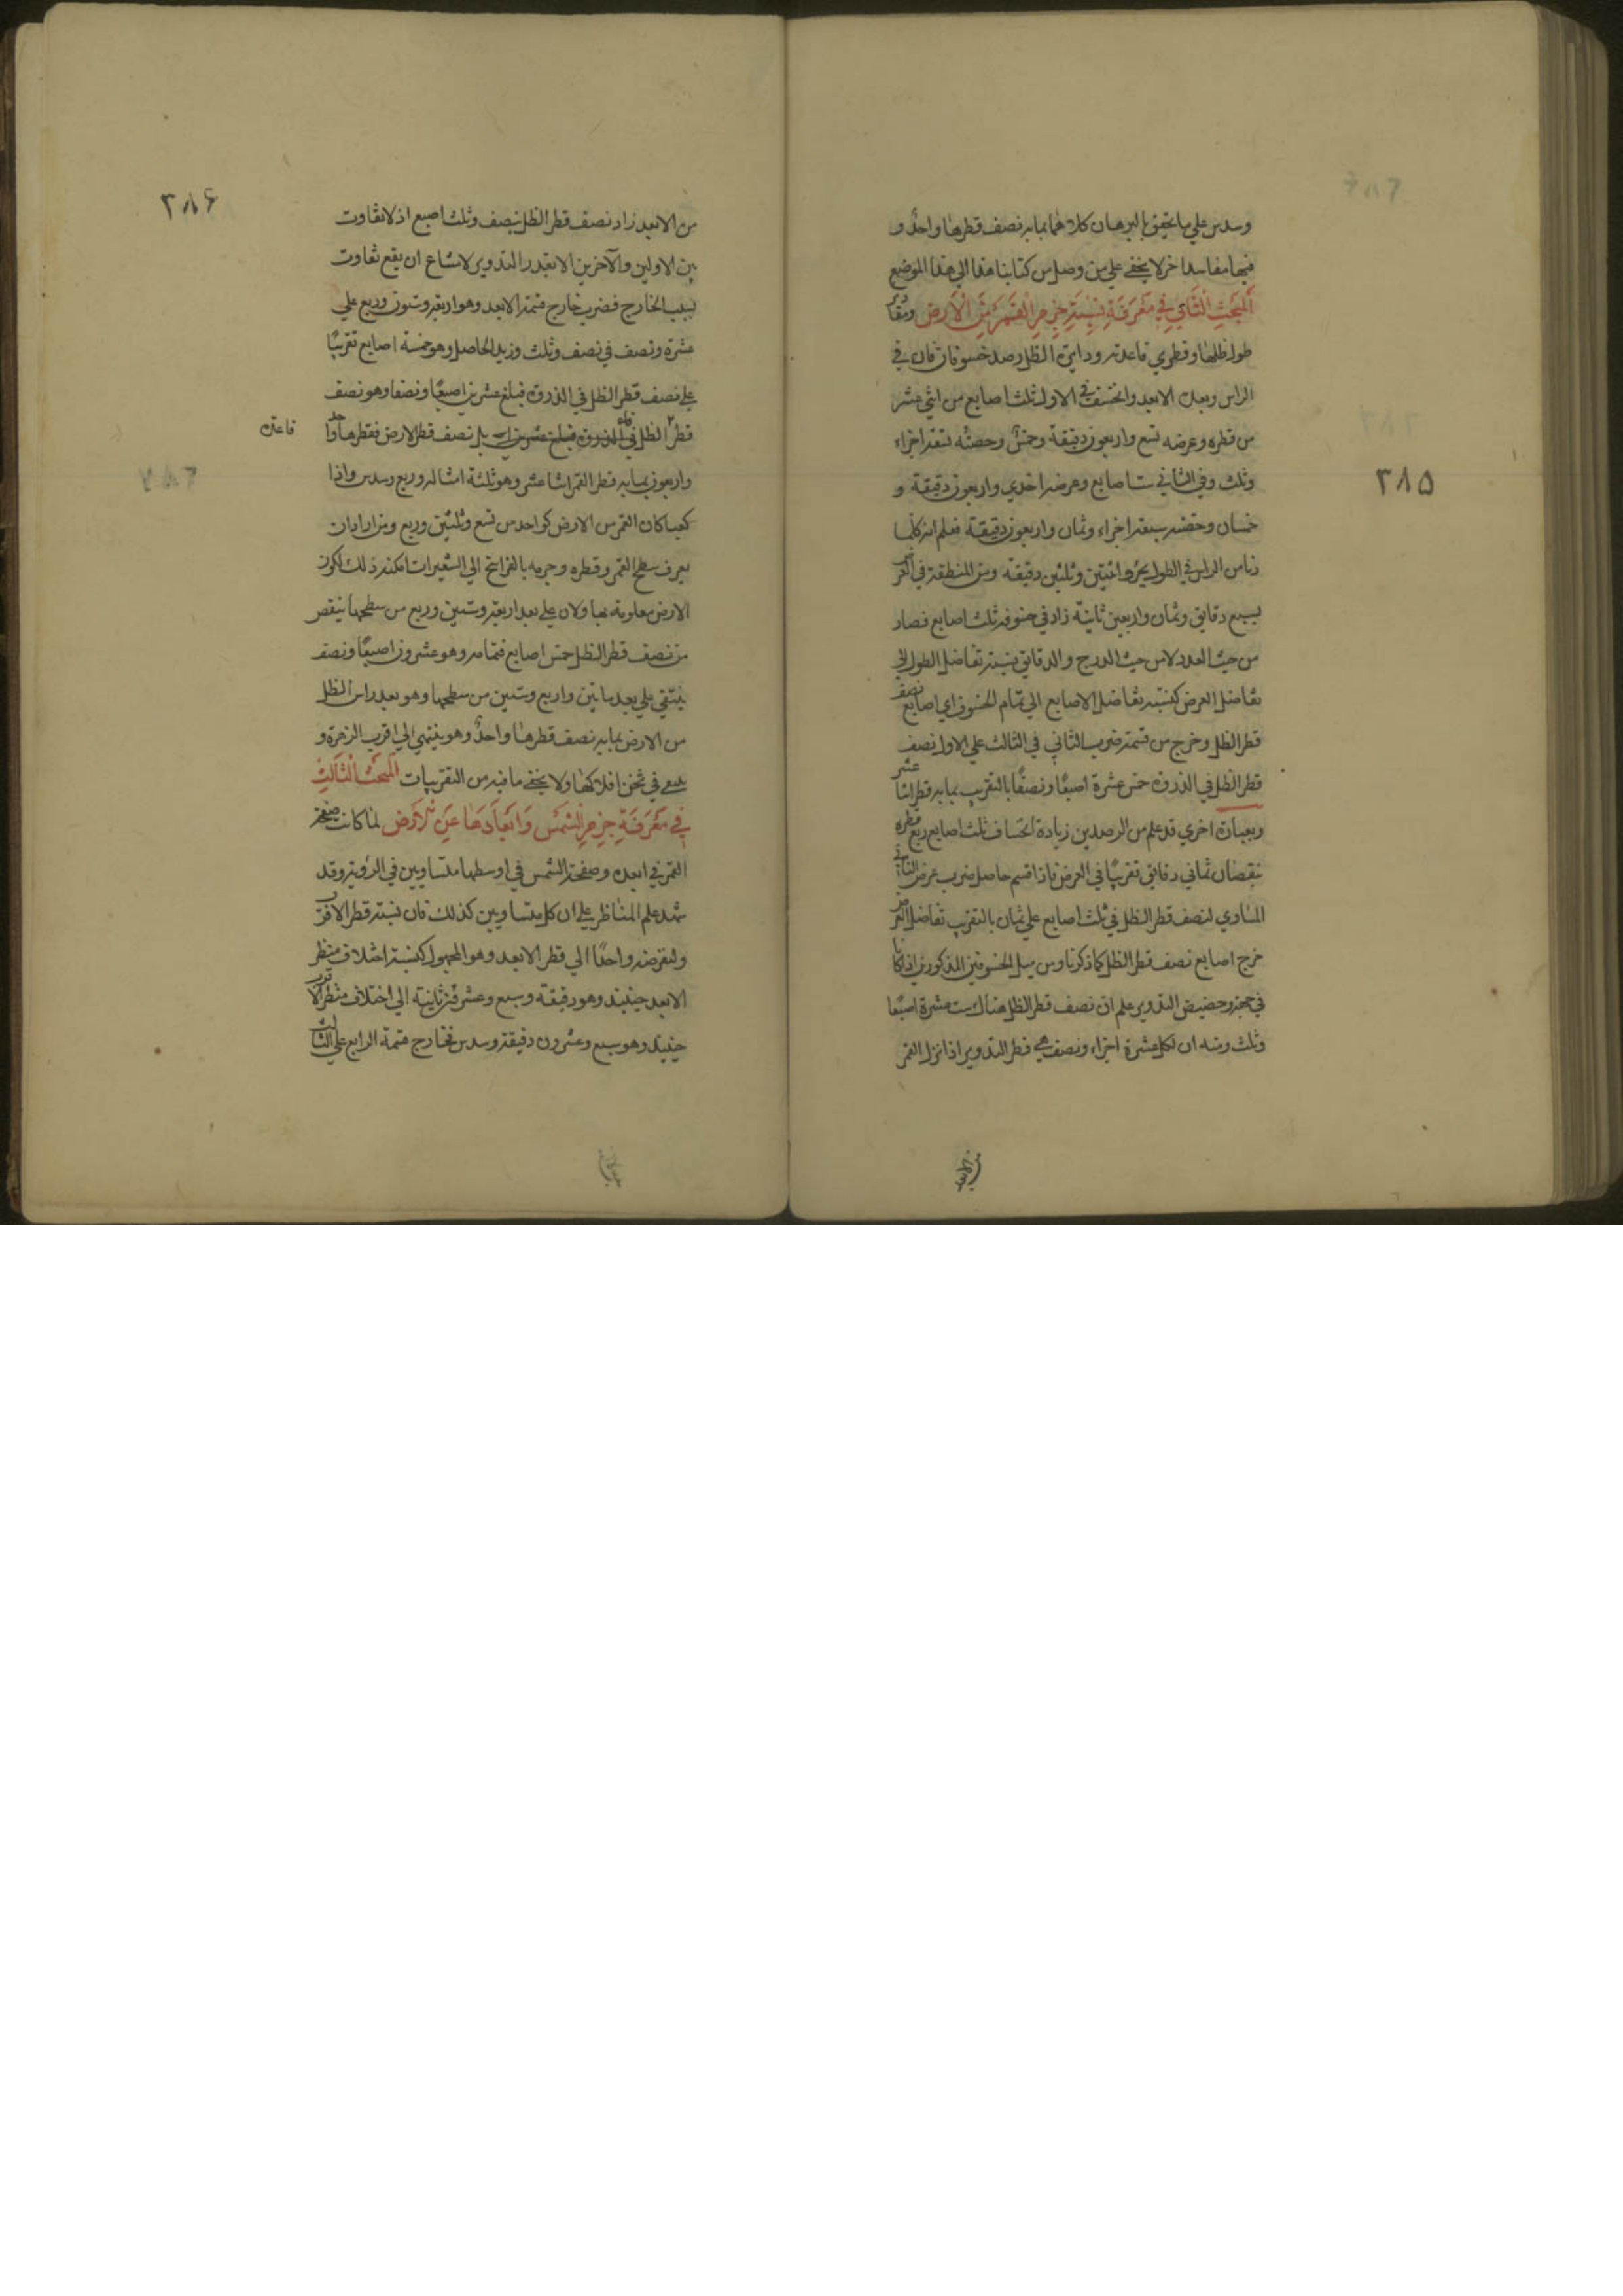 ٣٨٥
وسدس على ما تحقق بالبرهان كلاهما بما به نصف قطرها واحد و
فيها مفاسد اخر لا يخفى على من وصل من كتابنا هذا الى هذا الموضع
المبحث الثاني في معرفة نسبة جرم القمر من الارض ومقدار
طول ظلها وقطري قاعدته ودائرة الظل رصد خسوفان كان في
الراس وبعده الابعد وانخسف في الاول ثلث اصابع من اثني عشر
من قطره وعرضه تسع واربعون دقيقة وخمس وحصته تسعة اجزاء
وثلث وفي الثاني ست اصابع وعرضه احدي واربعون دقيقة و
خمسان وحصته سبعة اجزاء وثمان واربعون دقيقة فعلم انه كلما
دنا من الراس في الطول بجزء واثنتين وثلثين دقيقة ومن المنطقة في العرض
بسبع دقايق وثمان واربعين ثانية زاد في خسوفه ثلث اصابع فصار
من حيث العدد لا من حيث الدرج والدقايق نسبة تفاضل الطول الى
تفاضل العرض كنسبة تفاضل الاصابع الى تمام الخسوف اي اصابع نصف
قطر الظل وخرج من قسمة ضرب الثاني في الثالث على الاول نصف
قطر الظل في الذروة خمس عشرة اصبعا ونصفا بالتقريب بما به قطر اثنا عشر
وبعبارة اخري قد علم من الرصدين زيادة انخساف ثلث اصابع ربع قطره
بنقصان ثماني دقايق تقريبا في العرض فاذا قسم حاصل ضرب عرض الثاني
المساوي لنصف قطر الظل في ثلث اصابع على ثمان بالتقريب تفاضل العرض
خرج اصابع نصف قطر الظل كما ذكرنا ومن ميل الخسوفين المذكورين اذ كانا
في حضيض التدوير علم ان نصف قطر الظل هناك ست عشرة اصبعا
وثلث ومنه ان لكل عشرة اجزاء ونصف هي قطر التدوير اذا نزل القمر
من الابعد
٣٨٦
من الابعد زاد نصف قطر الظل بنصف وثلث اصبع اذ لا تفاوت
بين الاولين والآخرين الا بقدر التدوير لامتناع ان يقع تفاوت
بسبب الخارج فضرب خارج قسمة الابعد وهو اربعة وستون وربع على
عشرة ونصف في نصف وثلث وزيد الحاصل وهو خمسة اصابع تقريبا
على نصف قطر الظل في الذروة فبلغ عشرين اصبعا ونصفا وهو نصف
قطر الظل في بل نصف قطر الارض فقطرها واحد
قاعدة
واربعون بما به قطر القمر اثنا عشر وهو ثلثة امثاله وربع وسدس واذا
كعبا كان القمر من الارض كواحد من تسع وثلثين وربع ومن اراد ان
يعرف سطح القمر وقطره وجرمه بالفراسخ الى الشعيرات امكنه ذلك لكون
الارض معلومة بها ولان على بعد اربعة وستين وربع من سطحها ينقص
من نصف قطر الظل خمس اصابع فتمامه وهو عشرون اصبعا ونصف
ينتفي على بعد ماتين واربع وستين من سطحها وهو بعد راس الظل
من الارض بما به نصف قطرها واحد وهو ينتهي الى اقرب الزهرة و
في ثخن افلاكها ولا يخفى ما فيه من التقريبات المبحث الثالث
في معرفة جرم الشمس وابعادها عن الارض لما كانت صفحة
القمر في ابعده وصفحة الشمس في اوسطها متساويين في الرؤية وقد
شهد علم المناظر على ان كل متساويين كذلك فان نسبة قطر الاقرب
ولنفرضه واحدا الى قطر الابعد وهو المجهول كنسبة اختلاف منظر
الابعد حينئذ وهو دقيقة وسبع وعشرون ثانية الى اختلاف منظر الاقرب
حينئذ وهو سبع وعشرون دقيقة وسدس فخارج قسمة الرابع على الثالث